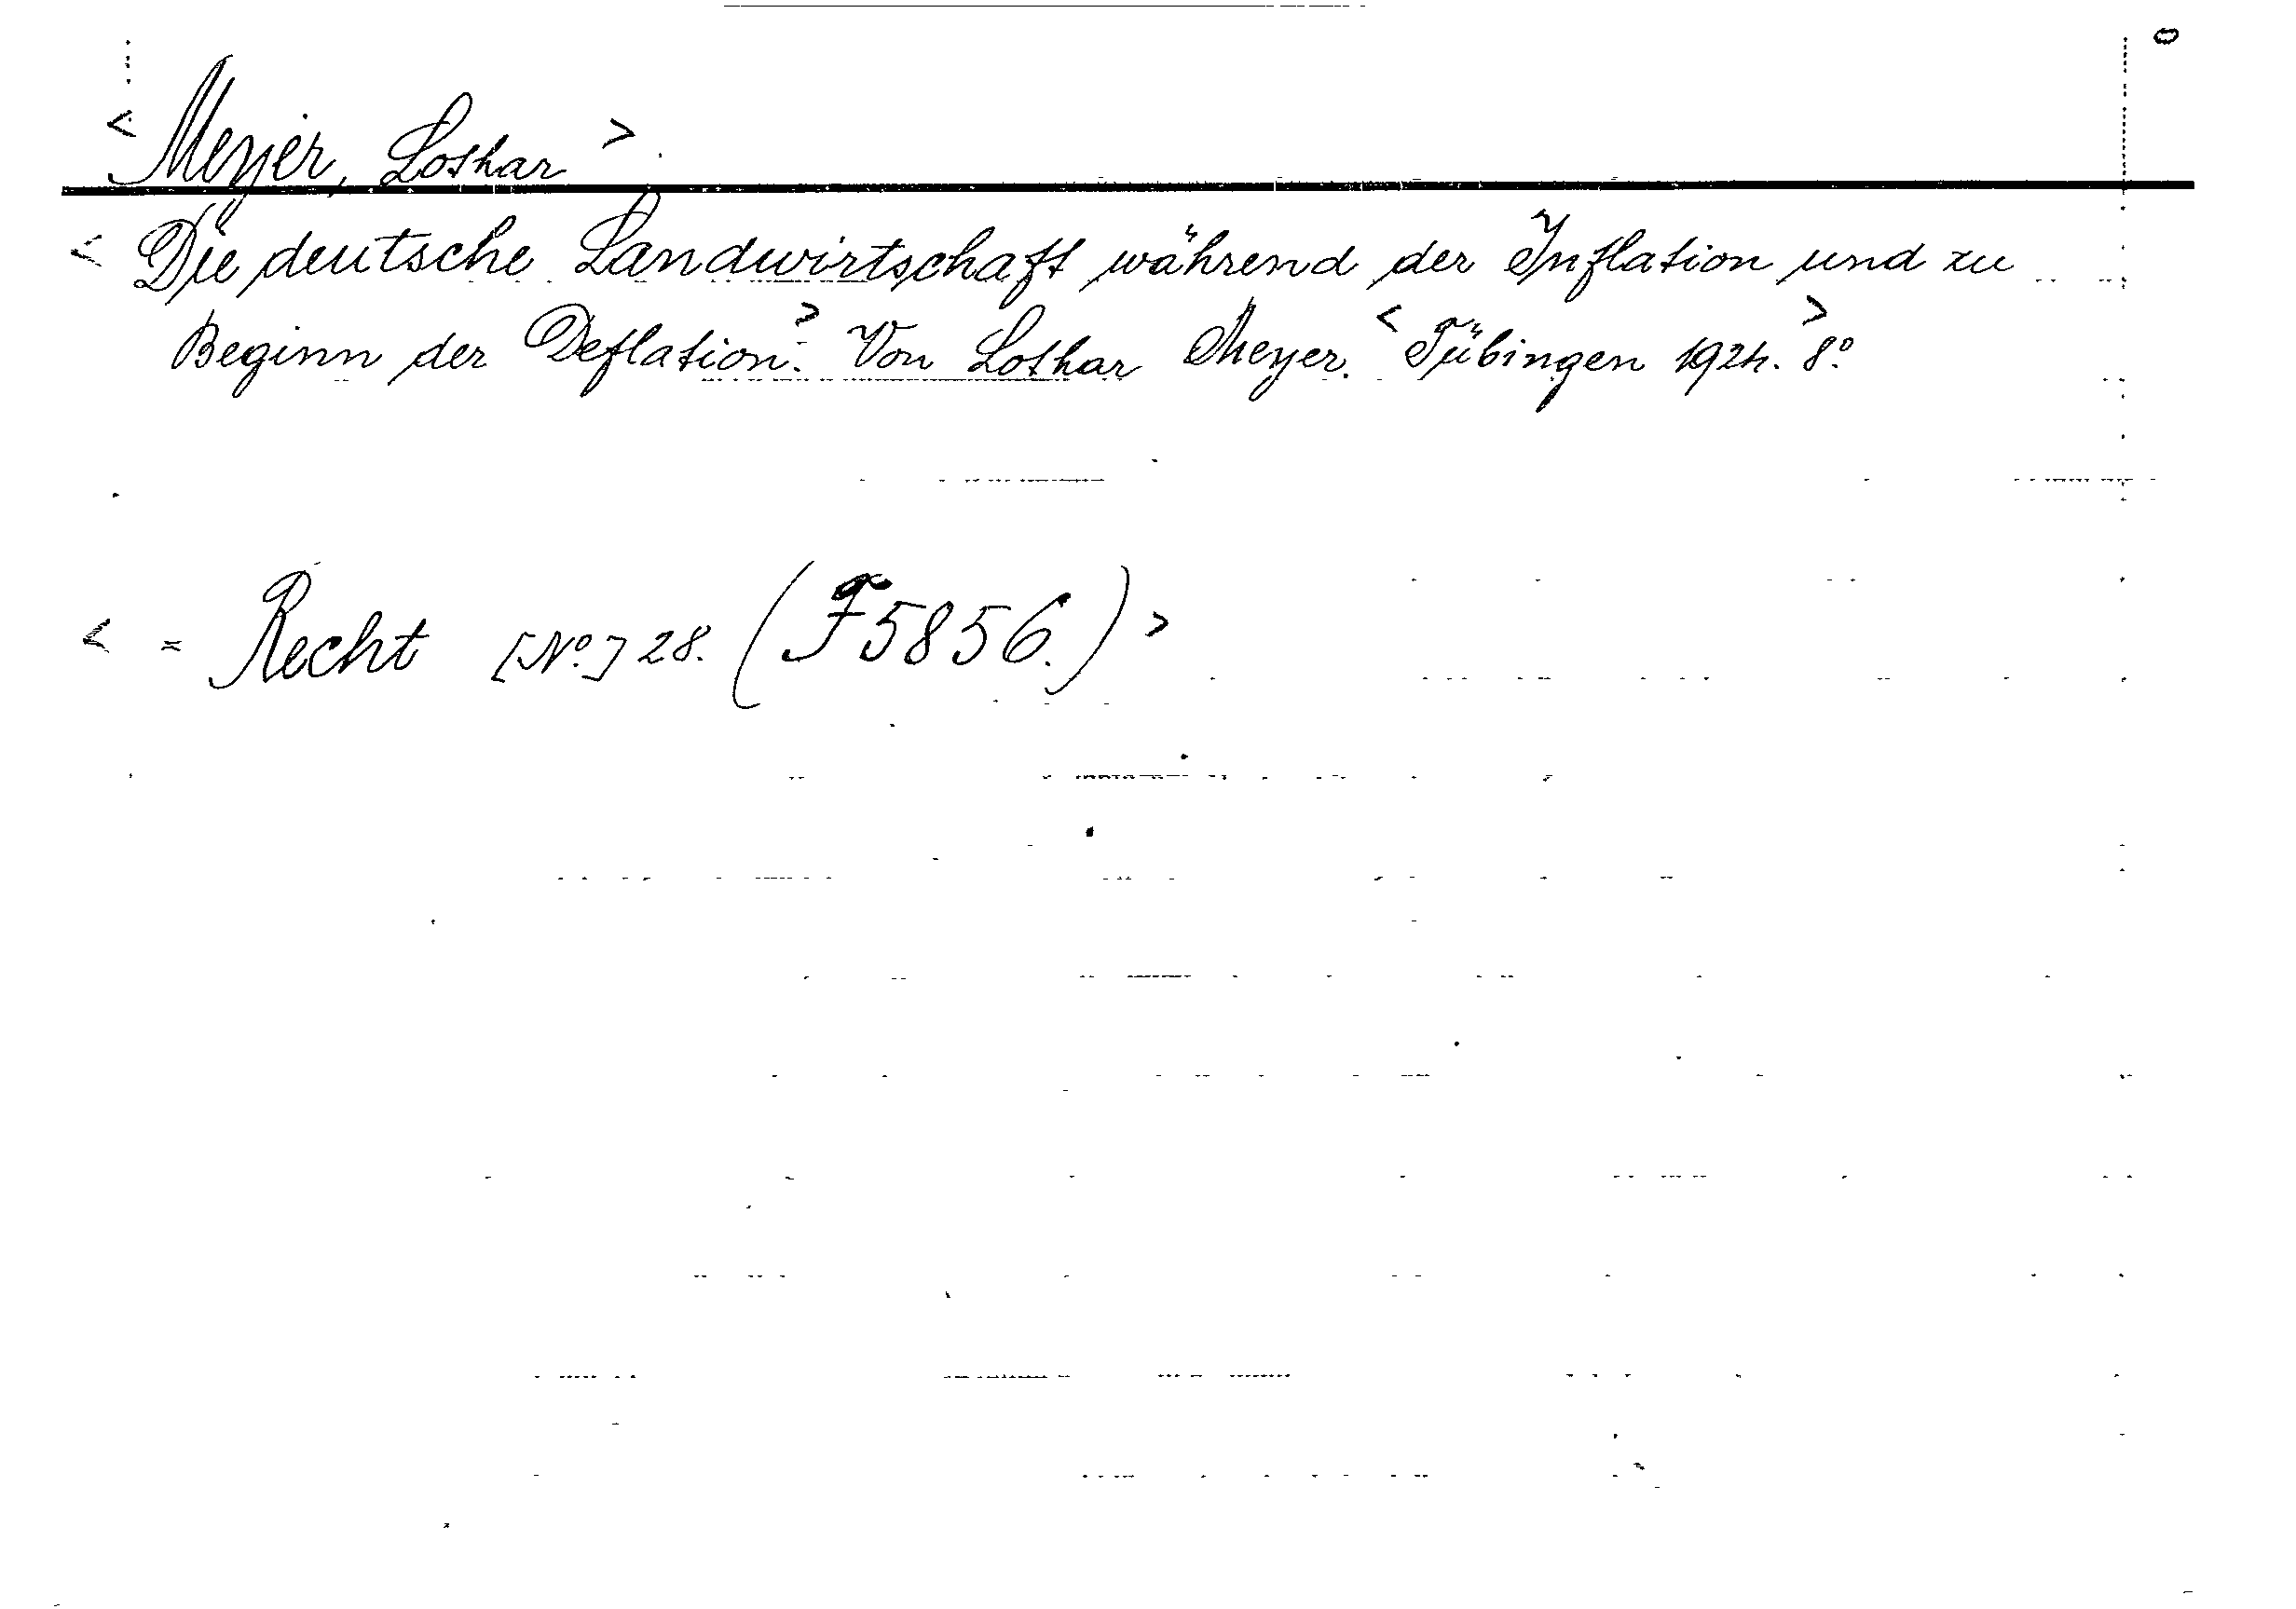 < Meyer, Lothar >
< Die deutsche Landwirtschaft während der Inflation und zu
Beginn der Deflation.> Von Lothar Meyer. < Tübingen 1924.> 8º.
< = Recht [Nº.] 28. (F5856.) >